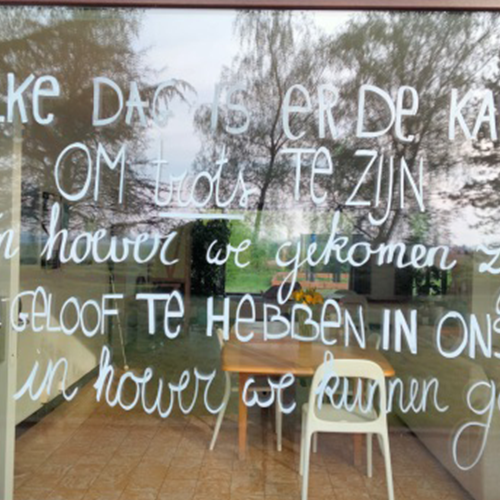 LKE DAG IS ER DE KA
OM trots TE ZIJN
n hoever we gekomen z
GELOOF TE HEBBEN IN ONS
in hoever we kunnen ga